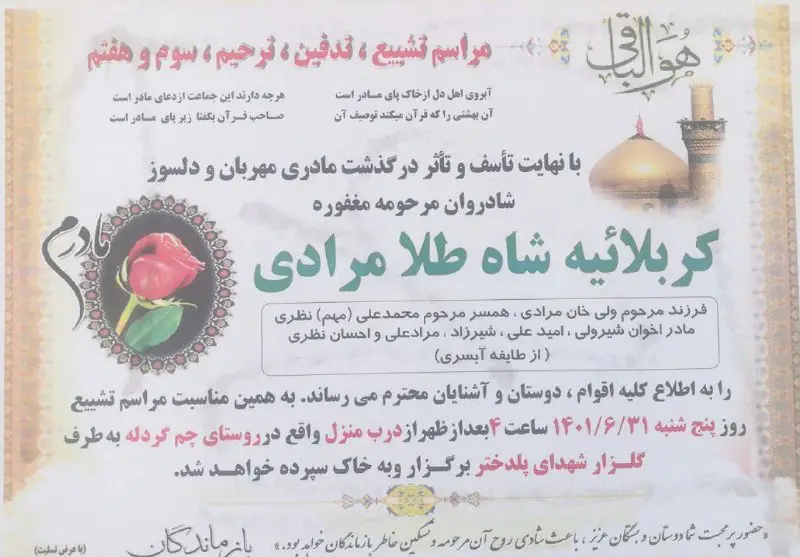 هو الباقی
مراسم تشییع ، تدفین ، ترحیم ، سوم و هفتم
آبروی اهل دل از خاک پای مادر است
هرچه دارند این جماعت از دعای مادر است
آن بهشتی را که قرآن میکند توصیف آن
صاحب قرآن بگفتا زیر پای مادر است
با نهایت تأسف و تأثر درگذشت مادری مهربان و دلسوز
شادروان مرحومه مغفوره
مادرم
کربلائیه شاه طلا مرادی
فرزند مرحوم ولی خان مرادی ، همسر مرحوم محمدعلی (مهم) نظری
مادر اخوان شیرولی ، امید علی ، شیرزاد ، مرادعلی و احسان نظری
( از طایفه آبسری)
را به اطلاع کلیه اقوام ، دوستان و آشنایان محترم می رساند. به همین مناسبت مراسم تشییع
روز پنج شنبه ۱۴۰۱/۶/۳۱ ساعت ۴ بعداز ظهر از درب منزل واقع در روستای چم گردله به طرف
گلزار شهدای پلدختر برگزار و به خاک سپرده خواهد شد.
«حضور پرمحبت شما دوستان و بستگان عزیز، باعث شادی روح آن مرحومه و تسکین خاطر بازماندگان خواهد بود.»
بازماندگان
(با عرض تسلیت)